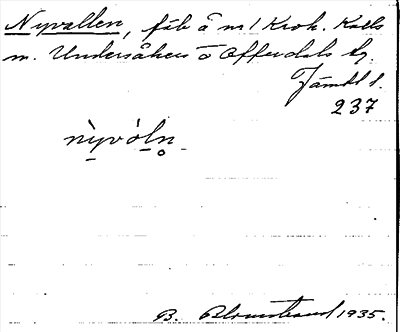 Nyvallen, fäb å m/ Krok. Kalls
m. Undersåkers o Offerdals tg.
Jämtl l.
237
nỳvòln
B. Blomstrand 1935.